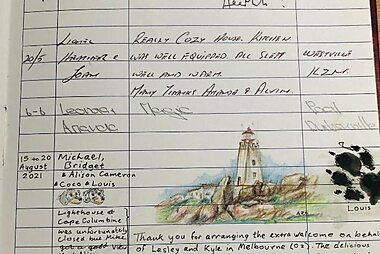 Lionel Really Cozy House. Kitchen
20/5 Hammer & was well equipped. All slept Westville
Joan well and warm. KZN.
Many thanks Amanda & Alvin.
6-6
15 to 20 Michael,
August Bridget
2021 & Alison Cameron
& Coco & Louis
Lighthouse at
Cape Columbine
was unfortunately
closed but Mike
got a good view
APS
Louis
Thank you for arranging the extra welcome on behalf
of Lesley and Kyle in Melbourne (Oz). The delicious